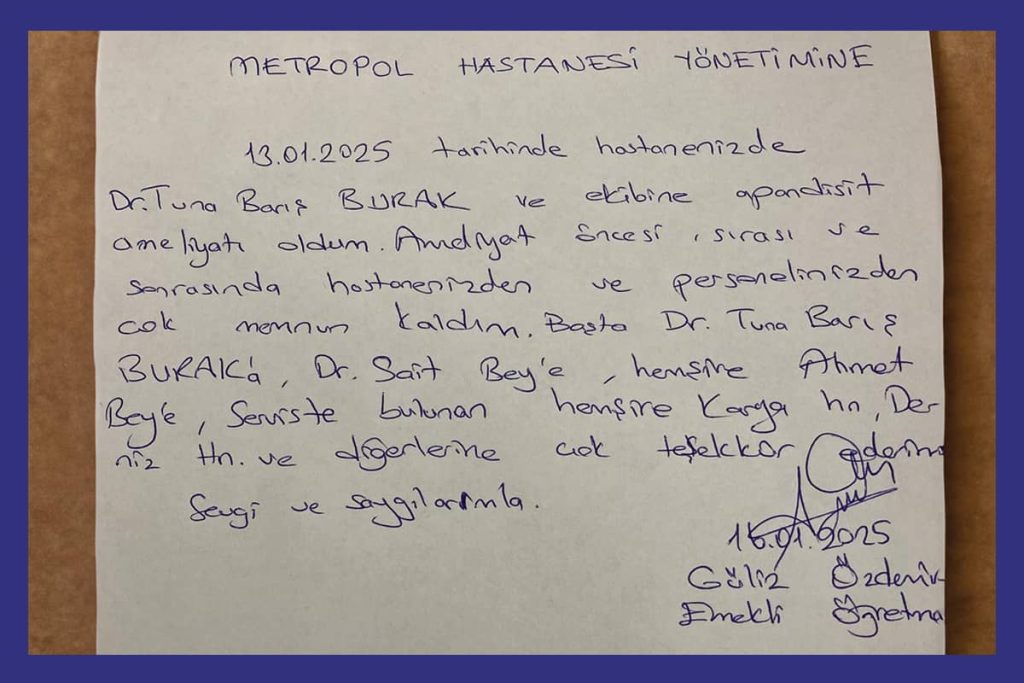 METROPOL HASTANESİ YÖNETİMİNE
13.01.2025 tarihinde hastanenizde
Dr. Tuna Barış BURAK ve ekibine apandisit
ameliyatı oldum. Ameliyat öncesi, sırası ve
sonrasında hastanenizden ve personelinizden
çok memnun kaldım. Başta Dr. Tuna Barış
BURAK'a, Dr. Sait Bey'e, hemşire Ahmet
Bey'e, Serviste bulunan hemşire Karga hn, De-
niz Hn. ve diğerlerine çok teşekkür ederim
Sevgi ve saygılarımla.
.01.2025
Güliz Özdemir
Emekli Öğretme